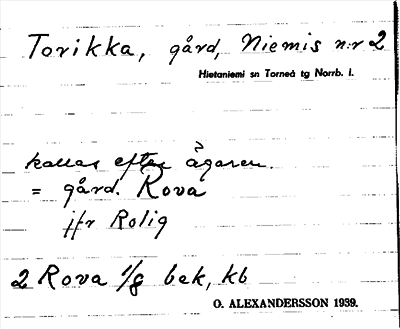 Torikka, gård, Niemis nr 2
Hietaniemi sn Torneå tg Norrb. l.
kallas efter ägaren.
= gård. Rova
jfr Rolig
2 Rova 1/8 bek, kb
O. ALEXANDERSSON 1939.